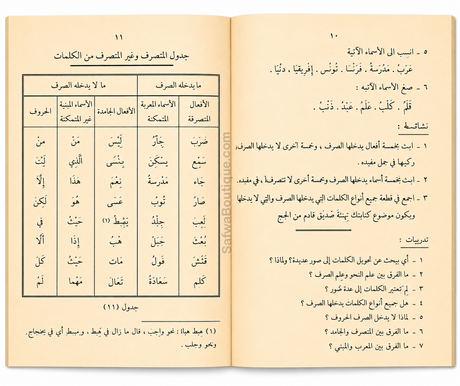 ١٠
٥ - انسب الى الأسماء الآتية
عَرَبْ . مَدْرَسَةْ . فَرَنْسَا . تُونُس . إِفْرِيقْيَا . دُنْيَا .
٦ - صغ الأسماء الآتية :
قَلَمْ . كَلْبْ . عَلَمْ . عَبْدْ . ذَنْبْ .
١ - ايت بخمسة أفعال يدخلها الصرف ، وخمسة أخرى لا يدخلها الصرف
ركبها في جمل مفيده .
٢ - ايت بخمسة أسماء يدخلها الصرف وخمسة أخرى لا تتصرف ، في مفيده .
٣ - اجمع في قطعة جميع أنواع الكلمات التي يدخلها الصرف والتي لا يدخلها
ويكون موضوع كتابتك تهنئة صديق قادم من الحج
تدريبات :
١ - أي يبحث عن تحويل الكلمات إلى صور عديدة؟ ولماذا ؟
٢ - ما الفرق بين علم النحو وعلم الصرف ؟
٣ - لم تعتبر الكلمات إلى عدة صور ؟
٤ - هل جميع أنواع الكلمات يدخلها الصرف ؟
٥ - لماذا لا يدخل الصرف الحروف ؟
٦ - ما الفرق بين المتصرف والجامد ؟
٧ - ما الفرق بين المعرب والمبني ؟
١١
جدول المتصرف وغير المتصرف من الكلمات
ما يدخله الصرف ما لا يدخله الصرف
الأفعال المتصرفة الأسماء المعربة المتمكنة الأفعال الجامدة الأسماء المبنية غير المتمكنة الحروف
ضَرَبَ جِدَارٌ لَيْسَ مَنْ مِنْ
سَمْع يِسْكَن بِئْسَى الَّذِي لَيْتَ
جَاء مَدْرَسَة نِعْمَ هذَا إِلَّا
صَارَ ثُوبُ عَسَى هُوَ لَكِنْ
لَعِبَ جِلْدٌ يَهِيطُ (١) حَيْثُ فِي
بُعْث جَبَلٌ هَبْ إِذَا أَلَا
فَتَّشَ فُولُ مَات حَيْثُ كَلَ
كَلم سَعَادَةٌ تَعَالَ مَهْما لَمْ
جدول (١١)
(١) هيط هياط : نحو واجب ، قال ما زال في هيط ، ومبيط أي في
ونحو وجلب .
SafwaBoutique.com